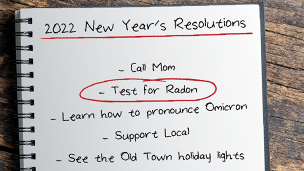 2022 New Year's Resolutions
- Call Mom
- Test for Radon
- Learn how to pronounce Omicron
- Support Local
- See the Old Town holiday lights